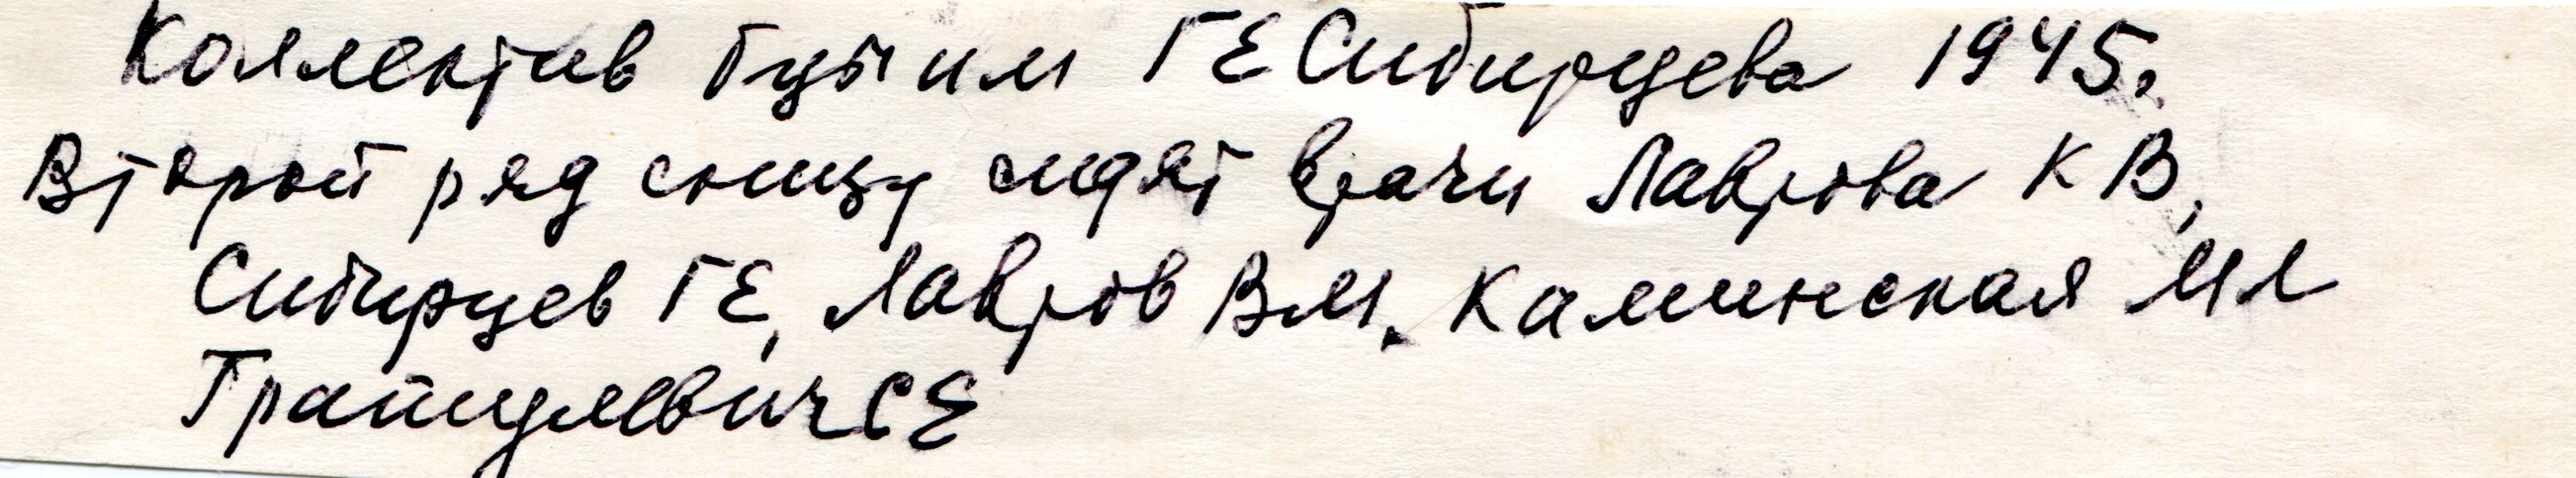 Коллектив бцы им ГЕ Сибирцева 1945.
Второй ряд снизу сидят врачи Лаврова К В,
Сибирцев ГЕ, Лавров ВМ. Каминская МЛ
СЕ